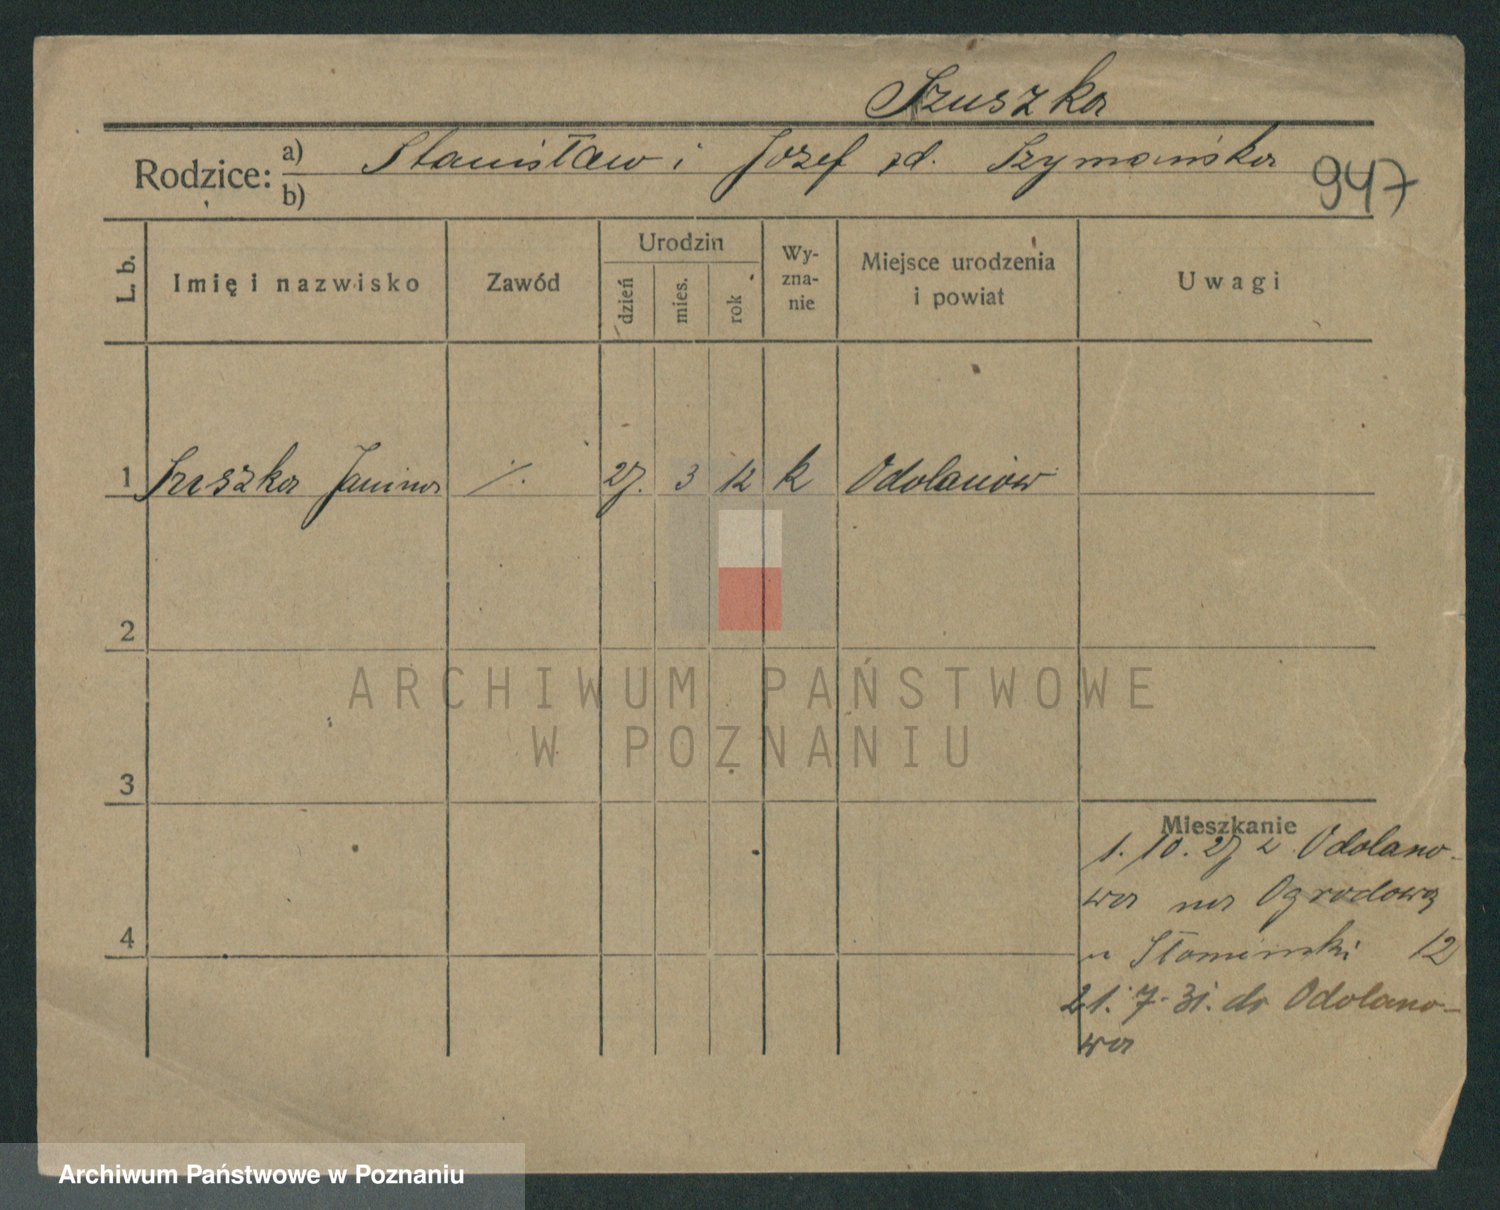 Szuszka
Rodzice: a) Stanisław i Józef zd. Szymańska
b)
947
L. b.
Imię i nazwisko
Zawód
Urodzin
dzień
mies.
rok
Wy-
zna-
nie
Miejsce urodzenia
i powiat
Uwagi
1 Szuszka Janina ·/. 27. 3 12 k Odolanów
2
3
4
Mieszkanie
1. 10. 27 z Odolano-
wa na Ogrodową
u Słomiński 12
21. 7. 31. do Odolano-
wa
ARCHIWUM PAŃSTWOWE
W POZNANIU
Archiwum Państwowe w Poznaniu